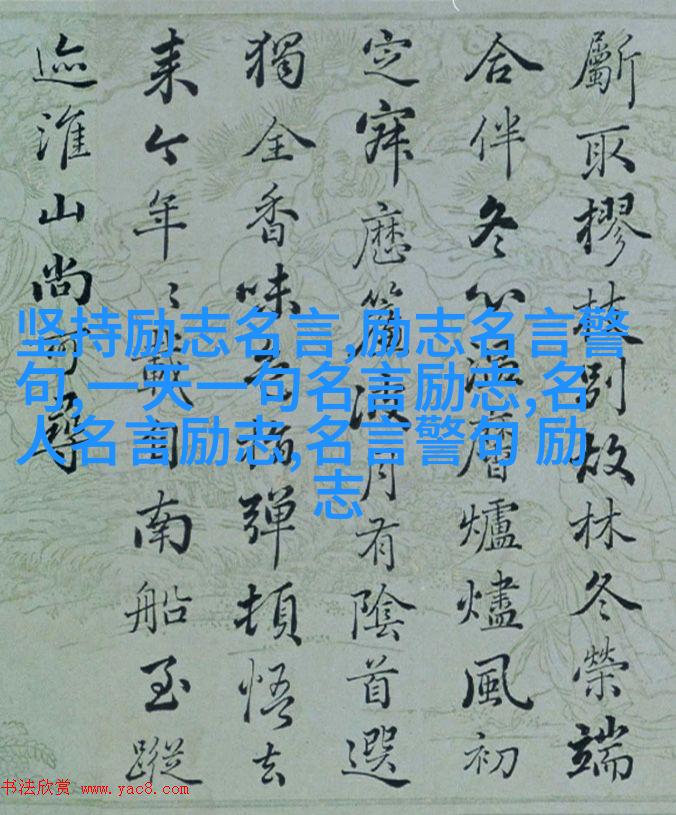 取樛枝別故林冬榮端
合伴冬心温爐燼風初
定寂歷簾波月有陰首選
獨全香味彈頓悟去
來今年〻載向南船至蹤
迹淮山尚可尋
坚持励志名言,励志名言警
句,一天一句名言励志,名
人名言励志,名言警句 励
志
书法欣赏 www.yac8.com